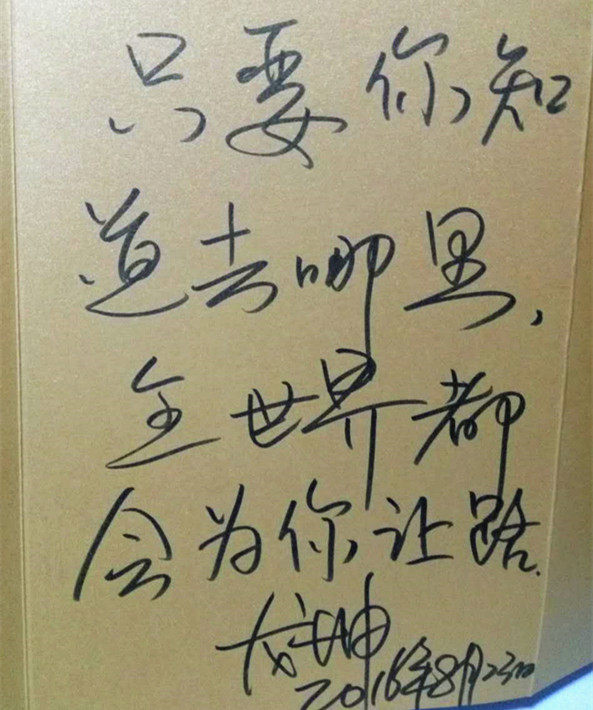 只要你知
道去哪里,
全世界都
会为你让路.
2016年8月23日